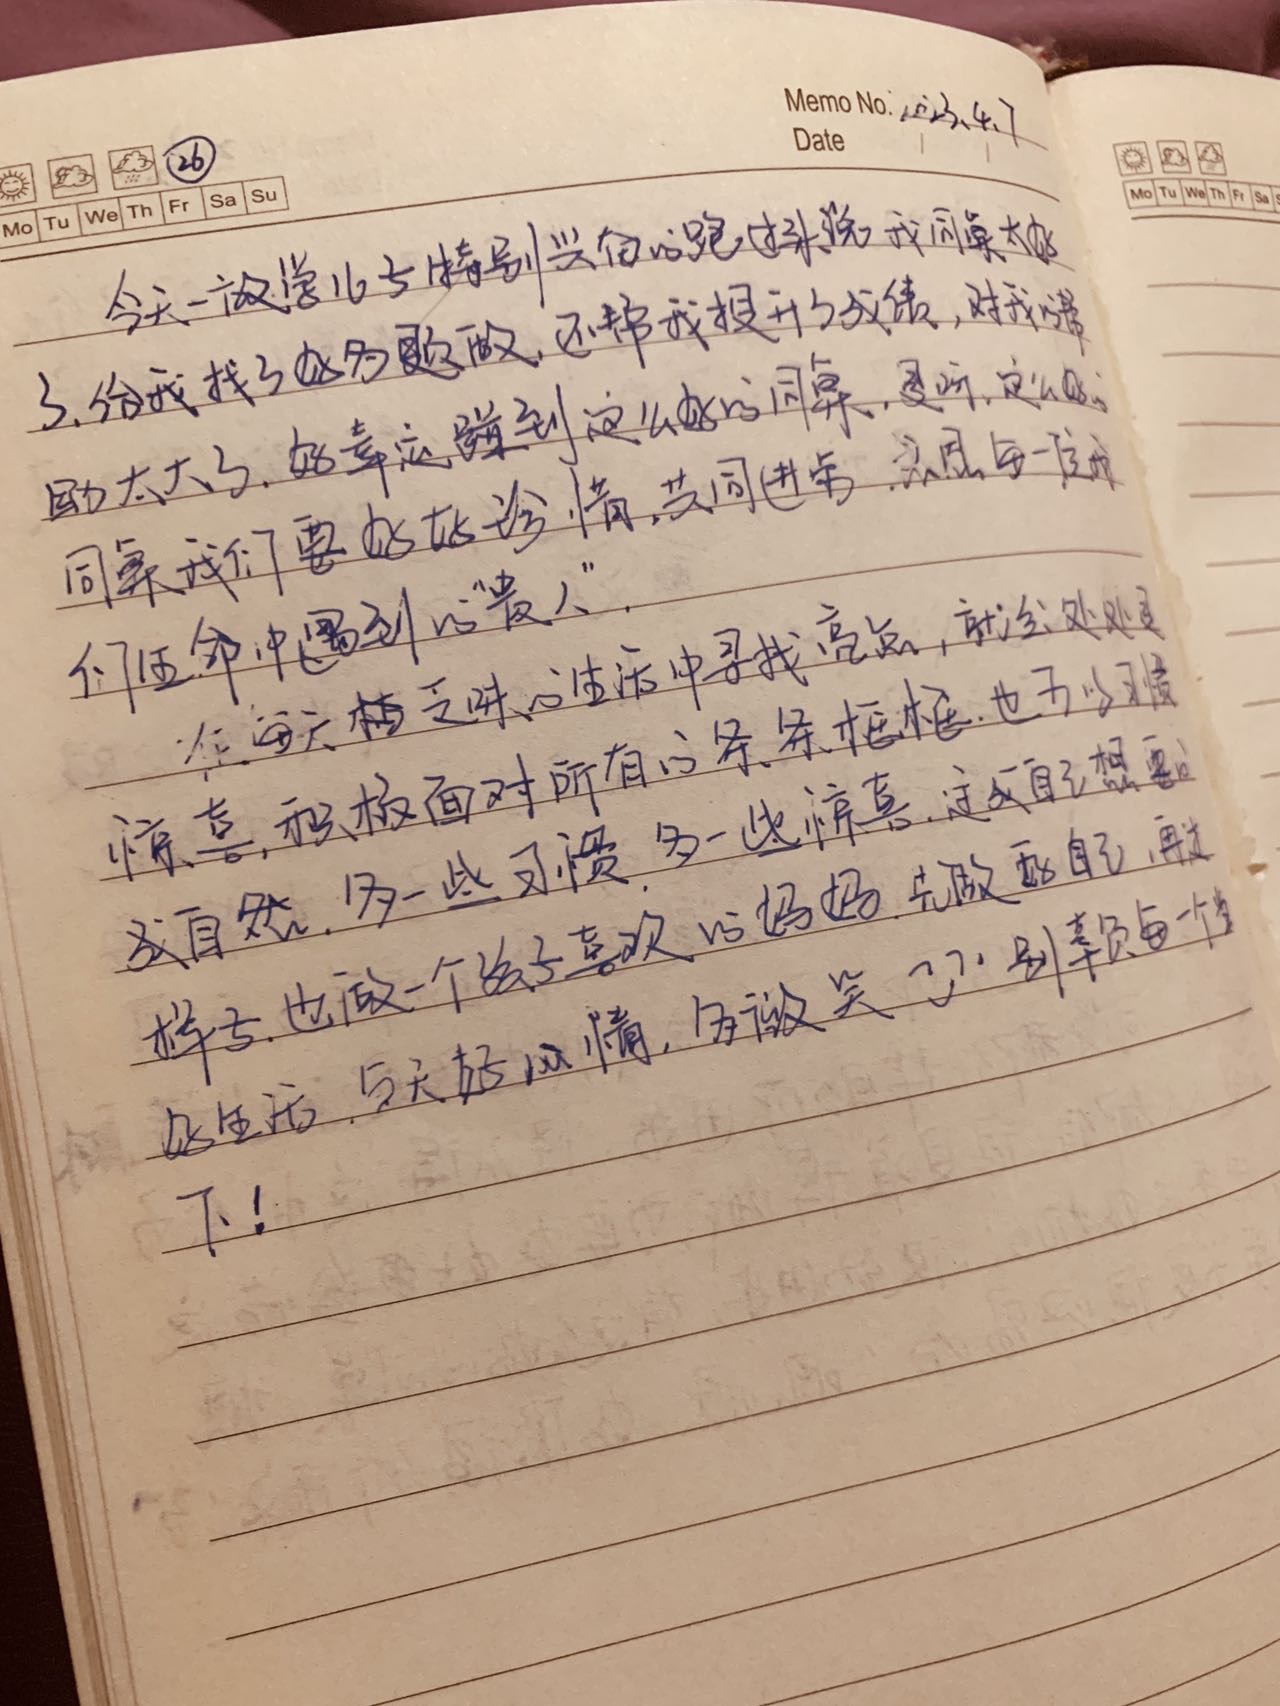 Memo No. 2023.4.7
Date
26
Mo Tu We Th Fr Sa Su
Mo Tu We Th Fr Sa S
今天一放学儿子特别兴奋的跑过来说我同桌太好
了,给我找了好多题做,还帮我提升了成绩,对我帮
助太大了,好幸运蹦到这么好的同桌,是呀,这么好的
同桌我们要好好珍惜,共同进步,感恩每一位我
们生命中遇到的“贵人”.
在每天枯乏味的生活中寻找亮点,就会处处是
惊喜,积极面对所有的条条框框,也可以习惯
成自然,多一些习惯,多一些惊喜,活成自己想要的
样子,也做一个孩子喜欢的妈妈,先做好自己,再去
好生活,每天好心情,多微笑 别辜负每一个当
下!